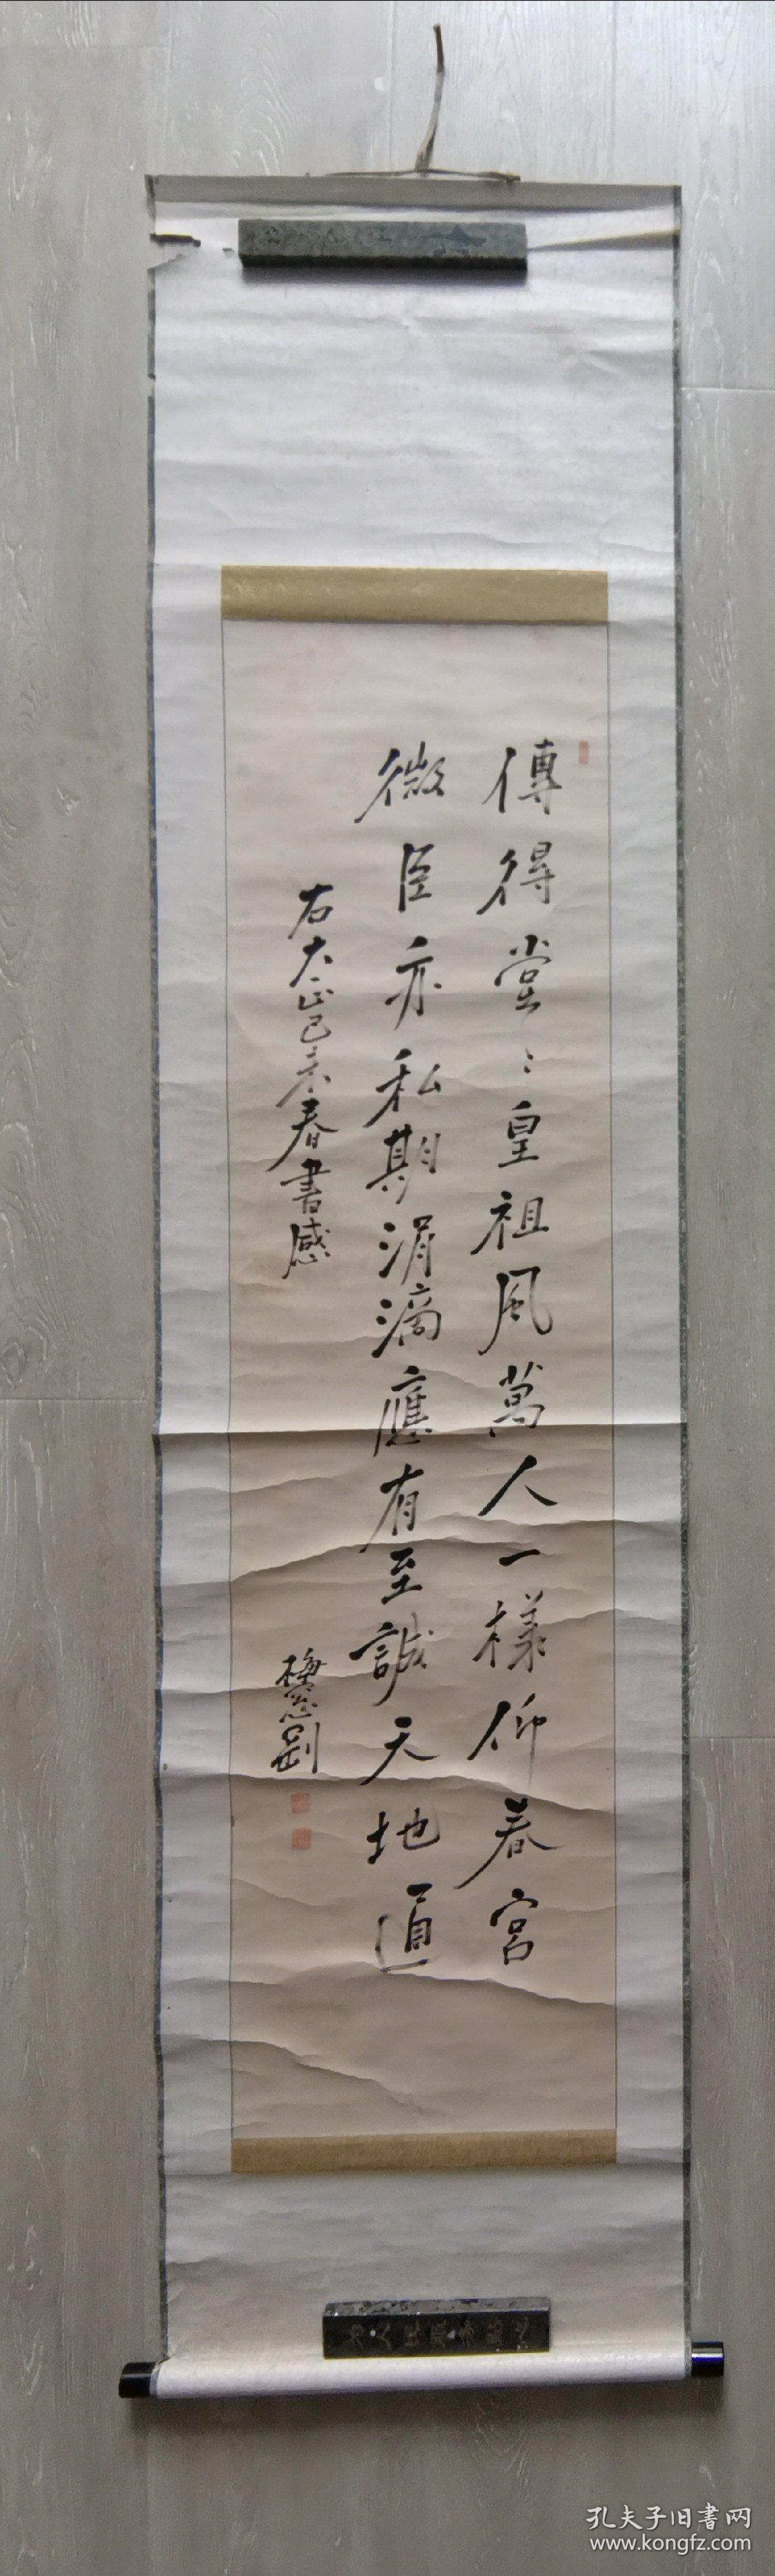 傳得堂〻皇祖風萬人一樣仰春宮
微臣亦私期涓滴應有至誠天地通
右大正己未春書感
梅窓剛
孔夫子旧書网
www.kongfz.com